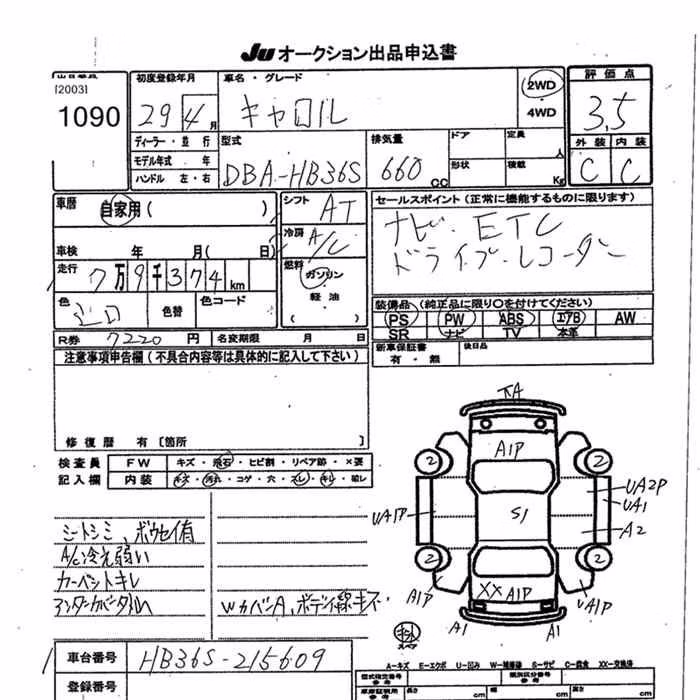 JU オークション出品申込書
[2003]
1090
初度登録年月
29 4月
ディーラー・並行
モデル年式・年
ハンドル 左・右
車名・グレード
キャロル
2WD
・
4WD
評価点
3.5
外装 内装
C C
型式
DBA-HB36S
排気量
660 cc
ドア
形状
定員
人
積載
Kg
車歴
自家用( )
シフト AT
冷房 A/C
車検 年 月( 日)
走行 7万9千374km
燃料
ガソリン
・
軽油
色
色替
色コード
R券 7220円
名変期限 月 日
セールスポイント(正常に機能するものに限ります)
ナビ・ETC
ドライブ・レコーダー
装備品(純正品に限り〇を付けてください)
PS PW ABS エアB AW
SR ナビ TV 本革
新車保証書
有・無
後日品
注意事項申告欄(不具合内容等は具体的に記入して下さい)
修復歴 有[箇所 ]
検査員
記入欄
FW キズ・飛石・ヒビ割・リペア跡・×要
内装 キズ・汚れ・コゲ・穴・スレ・キレ・破レ
シートシミ、ボウセイ有
A/C冷え弱い
カーペントキレ
WカバーA、ボディ線キズ
XA
A1P
2 2
UA2P
UA1
UA1P
S1
A2
2 2
A1P
XX A1P
UA1P
A1 A1
スペア
A-キズ E-エクボ U-凹み W-補修跡 S-サビ C-腐食 XX-交換済
車台番号 HB36S-215609
登録番号
型式指定番号
類別区分番号
長さ cm
幅 cm
高さ cm